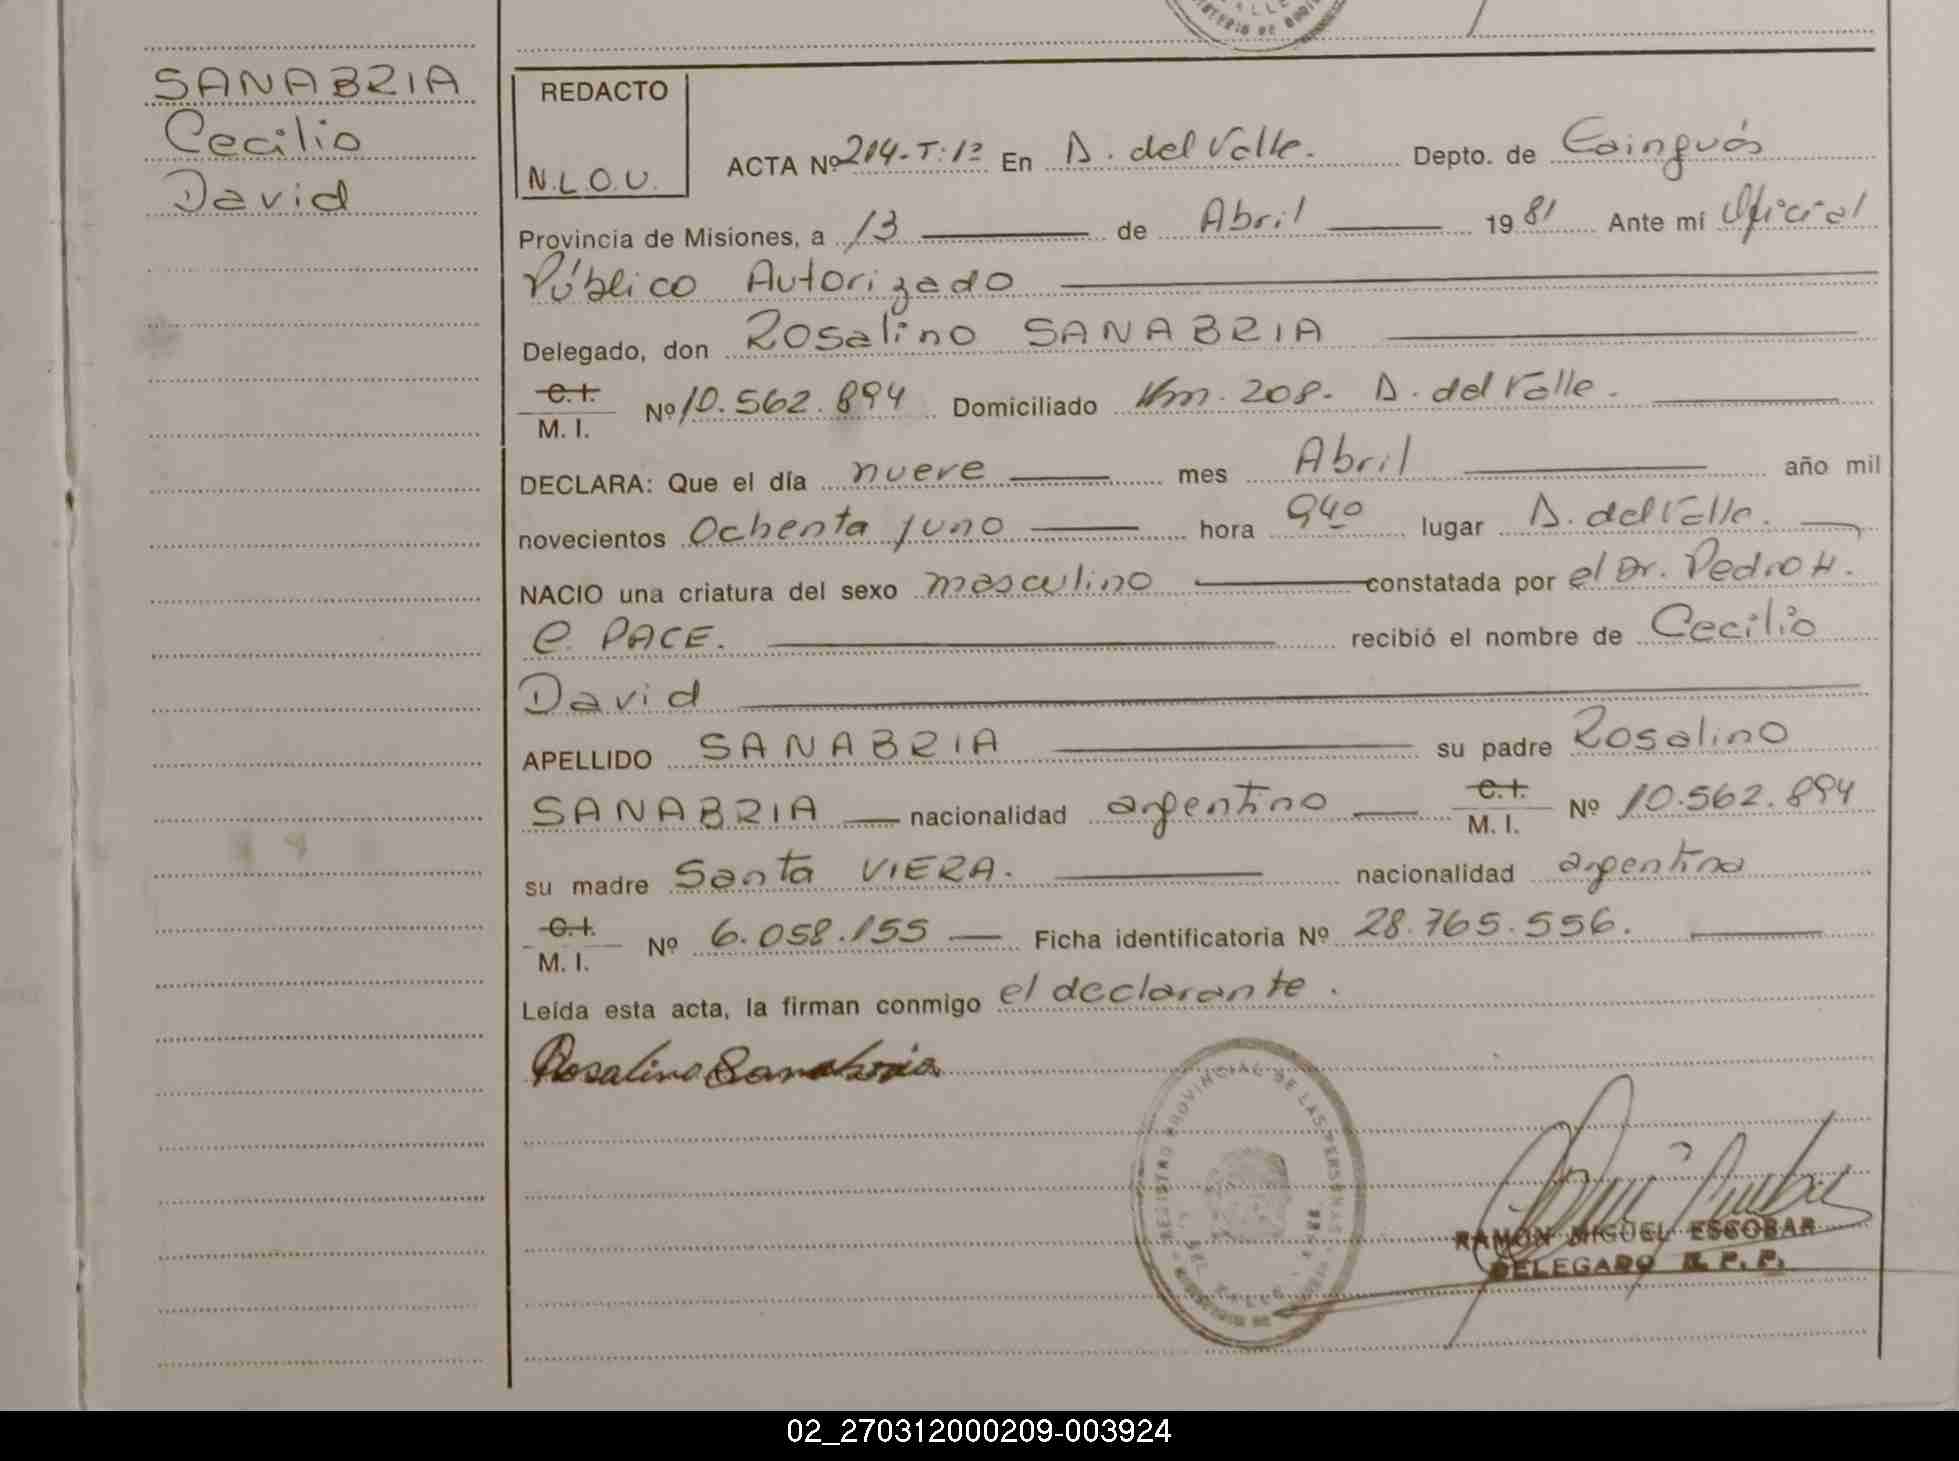 SANABRIA
Cecilio
David
REDACTO
N.L.O.U.
ACTA Nº 214-T:1º En A. del Valle. Depto. de Cainguás
Provincia de Misiones, a 13 de Abril 19 81 Ante mí Oficial
Público Autorizado
Delegado, don Rosalino SANABRIA
C.I.
M. I. Nº 10.562.894 Domiciliado Km. 208. A. del Valle.
DECLARA: Que el día nueve mes Abril año mil
novecientos Ochenta y uno hora 940 lugar A. del Valle.
NACIO una criatura del sexo masculino constatada por el Dr. Pedro H.
C. PACE. recibió el nombre de Cecilio
David
APELLIDO SANABRIA su padre Rosalino
SANABRIA nacionalidad argentino C.I. M. I. Nº 10.562.894
su madre Santa VIERA. nacionalidad argentina
C.I.
M. I. Nº 6.058.155 Ficha identificatoria Nº 28.765.556.
Leída esta acta, la firman conmigo el declarante.
Rosalino Sanabria
REGISTRO PROVINCIAL DE LAS PERSONAS
DEL VALLE
RAMON MIGUEL ESCOBAR
DELEGADO R. P. P.
02_270312000209-003924